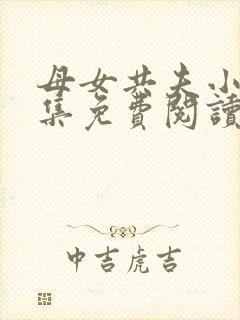 母女共夫小
集免費閱讀
中吉虎吉